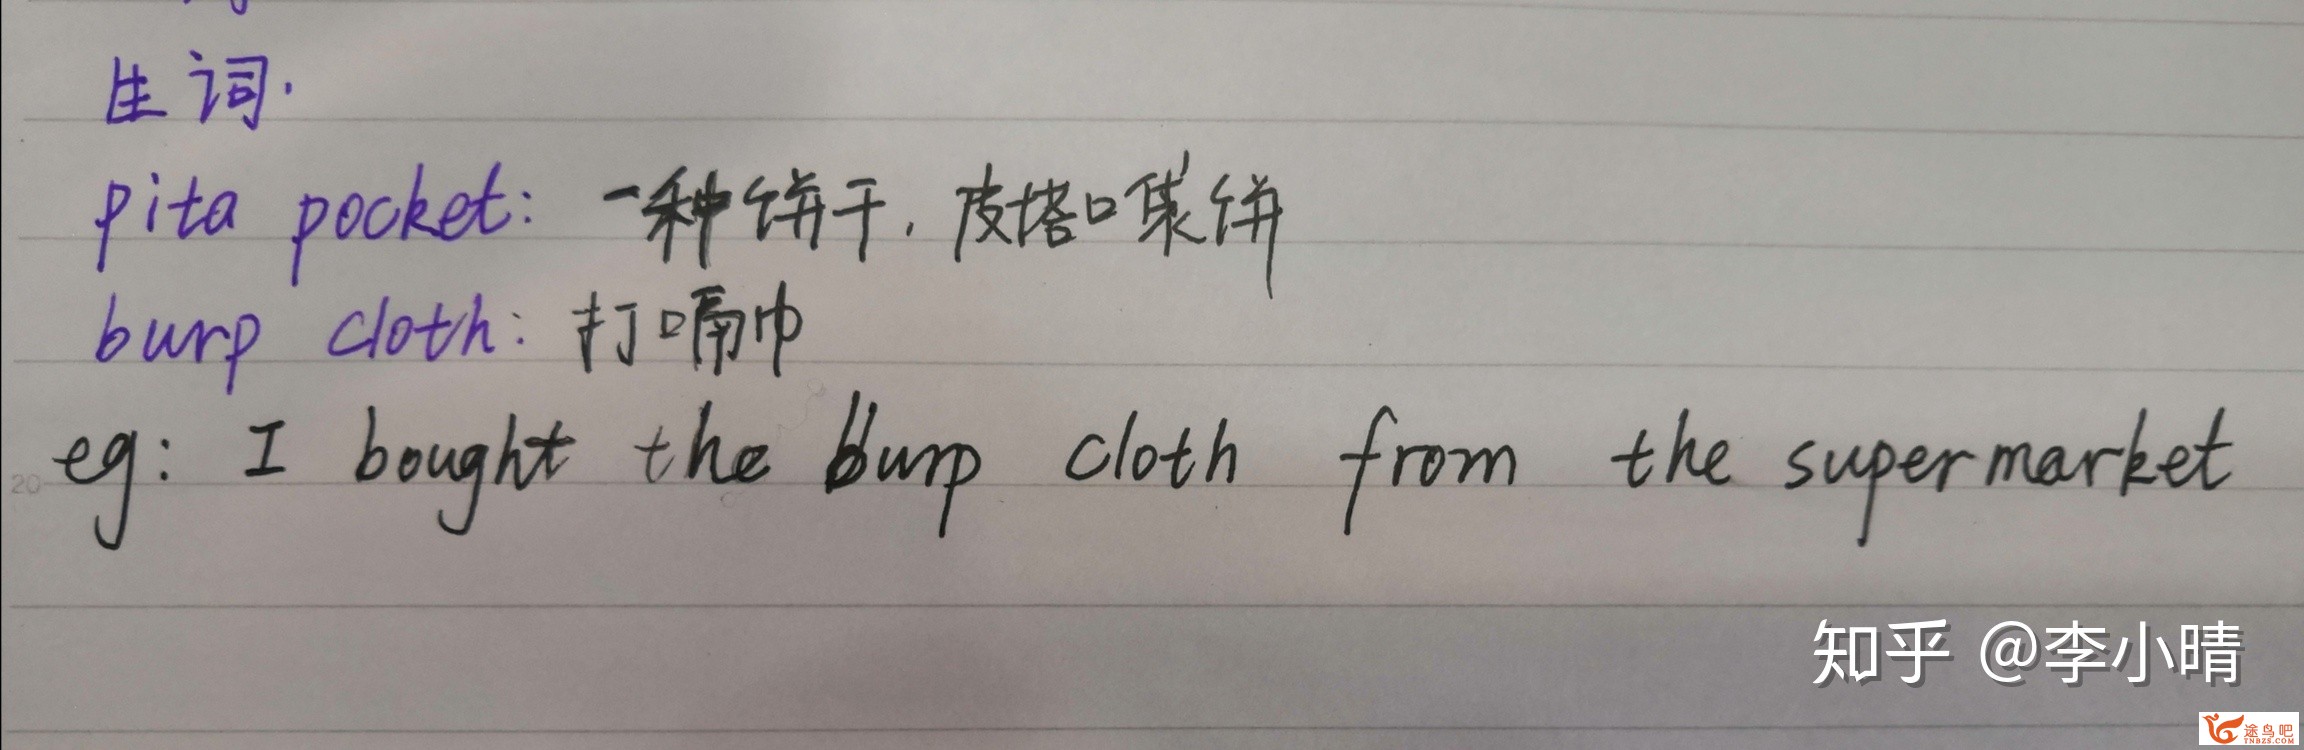 生词.
pita pocket: 一种饼干, 皮塔口袋饼
burp cloth: 打嗝巾
eg: I bought the burp cloth from the supermarket
20
知乎 @李小晴
途鸟吧
TNBZS.COM